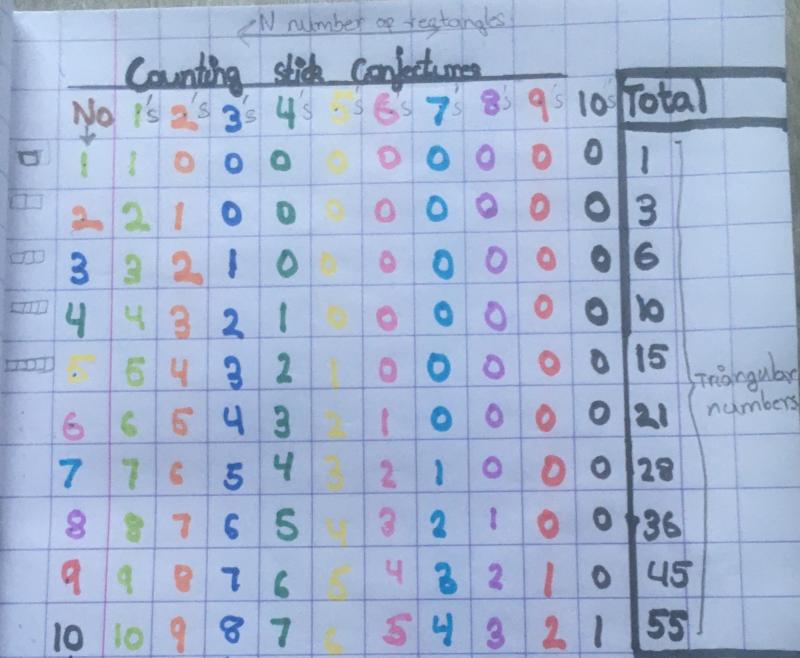 N number of rectangles
Counting stick Conjectures
No 1's 2's 3's 4's 5's 6's 7's 8's 9's 10's Total
1 1 0 0 0 0 0 0 0 0 0 1
2 2 1 0 0 0 0 0 0 0 0 3
3 3 2 1 0 0 0 0 0 0 0 6
4 4 3 2 1 0 0 0 0 0 0 10
5 5 4 3 2 1 0 0 0 0 0 15
6 6 5 4 3 2 1 0 0 0 0 21
7 7 6 5 4 3 2 1 0 0 0 28
8 8 7 6 5 4 3 2 1 0 0 36
9 9 8 7 6 5 4 3 2 1 0 45
10 10 9 8 7 6 5 4 3 2 1 55
Triangular
numbers